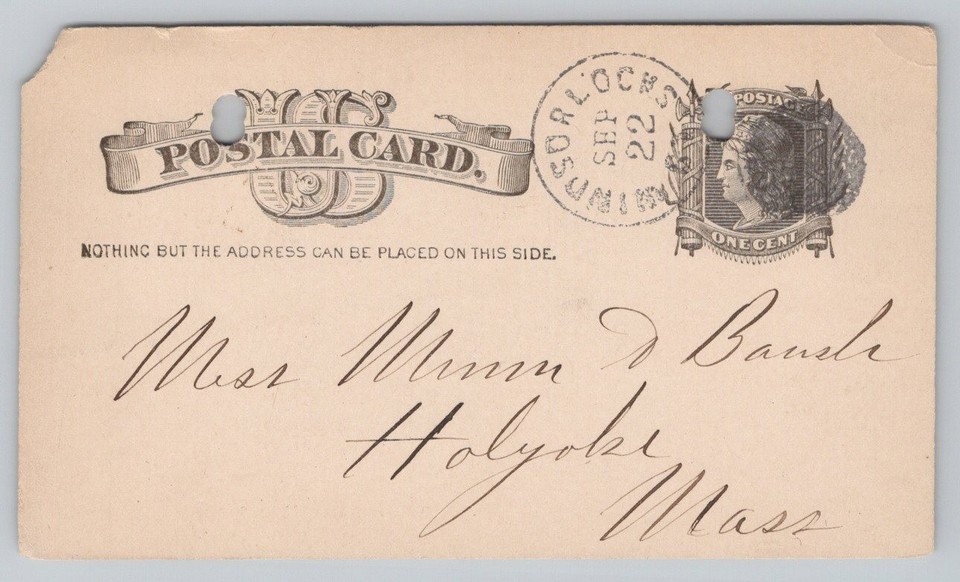 US
POSTAL CARD.
NOTHING BUT THE ADDRESS CAN BE PLACED ON THIS SIDE.
WINDSOR LOCKS
SEP
22
POSTAGE
ONE CENT
Mess
Holyoke
Mass